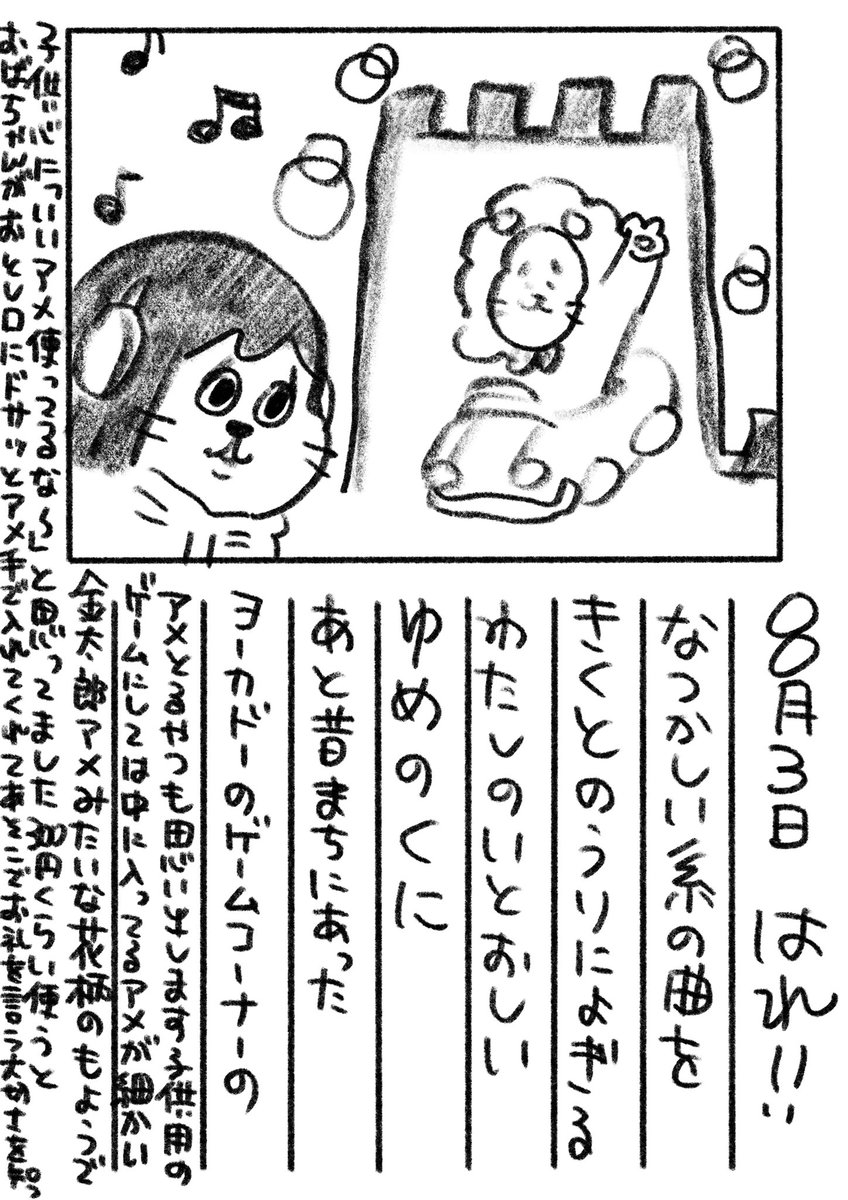 8月3日 はれ!!
なつかしい系の曲を
きくとのうりによぎる
わたしのいとおしい
ゆめのくに
あと昔まちにあった
ヨーカドーのゲームコーナーの
アメとるやつも思いだします子供用の
ゲームにしては中に入ってるアメが細かい
金太郎アメみたいな花柄のもようで
子供心に「いいアメ使ってるな〜」と思ってました 300円くらい使うと
おばちゃんがおとし口にドサッとアメ手で入れてくれて